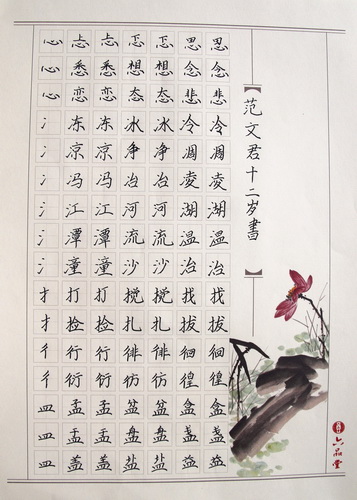 心忐忐忑忑思思
心悉悉想想念念
心恋恋态态悲悲
冫冻冻冰冰冷冷
冫凉凉净净凋凋
冫冯冯冶冶凌凌
氵江江河河湖湖
氵潭潭流流温温
氵潼潼沙沙治治
扌打打搅搅找找
扌捡捡扎扎拔拔
彳行行徘徘徊徊
彳衍衍彷彷徨徨
皿孟孟盆盆盒盒
皿盂盂盘盘盏盏
皿盖盖盐盐益益
【范文君十二岁書】
六品堂